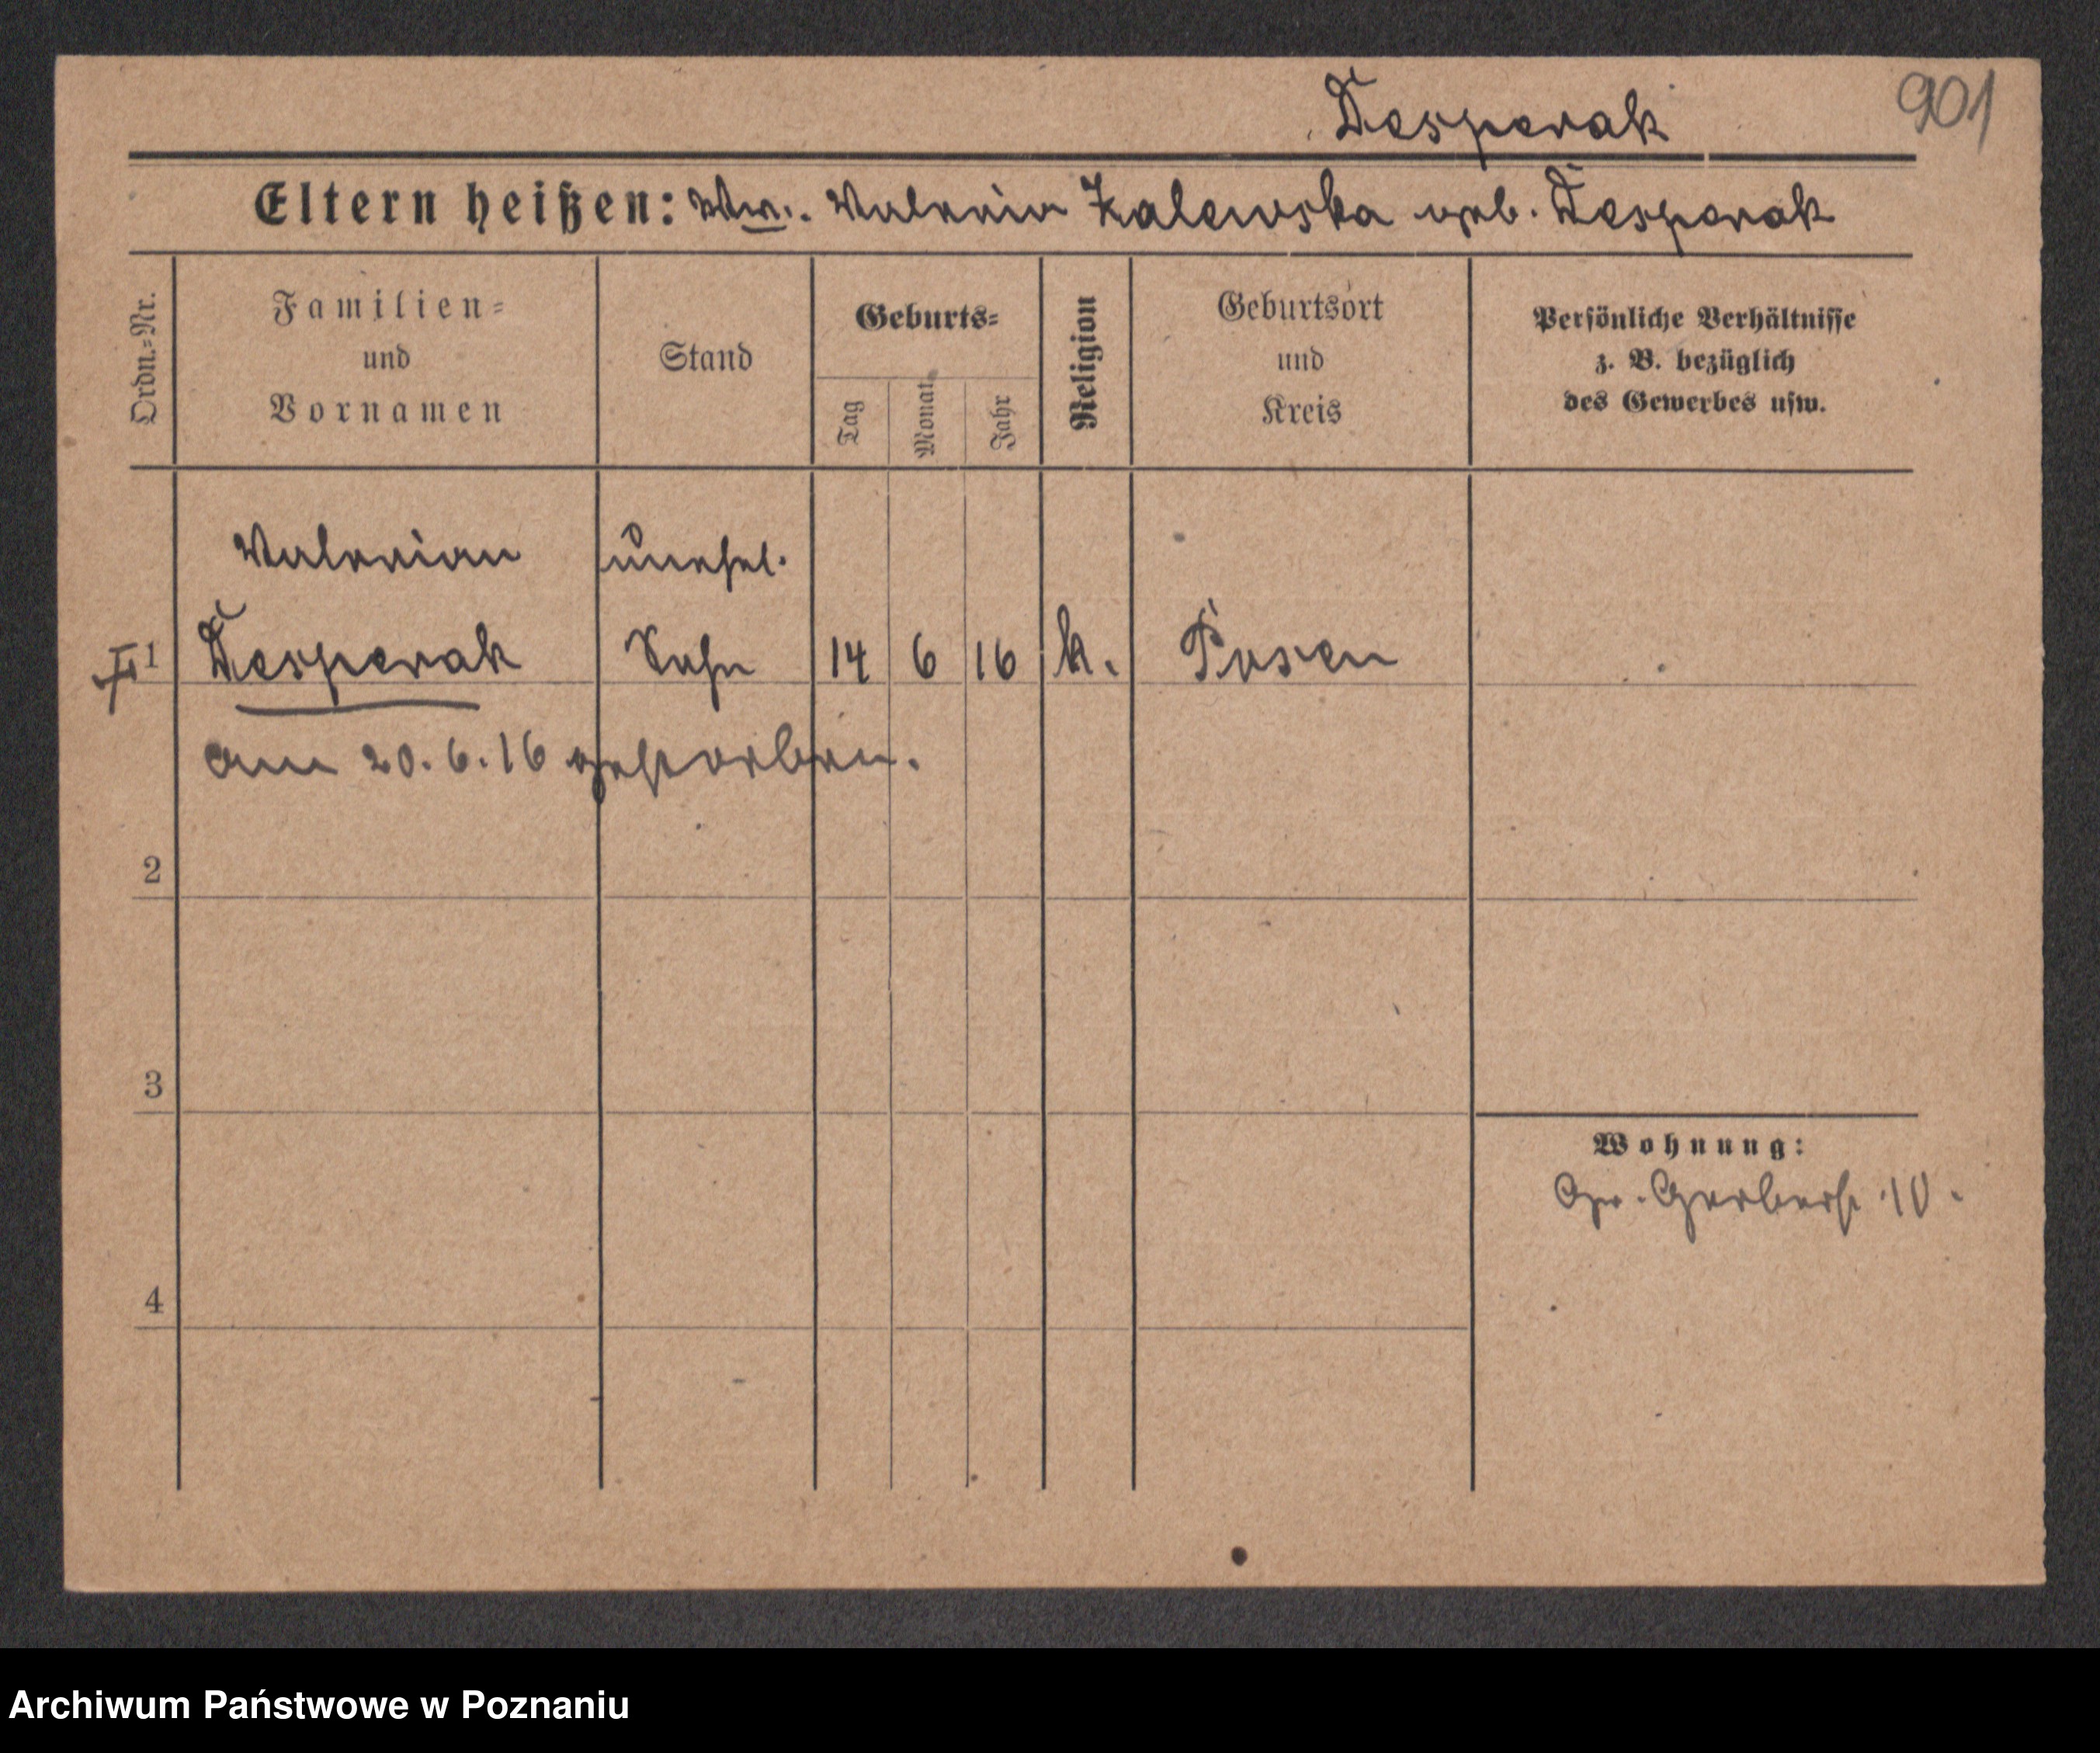 Desperak
901
Eltern heißen: Ww. Valeria Zalewska geb. Desperak
Ordn.-Nr.
Familien-
und
Vornamen
Stand
Geburts-
Tag
Monat
Jahr
Religion
Geburtsort
und
Kreis
Persönliche Verhältnisse
z. B. bezüglich
des Gewerbes usw.
Valerian unehel.
1 Desperak Sohn 14 6 16 k. Posen
am 20.6.16 gestorben.
2
3
Wohnung:
Gr. Gerberst. 10.
4
Archiwum Państwowe w Poznaniu